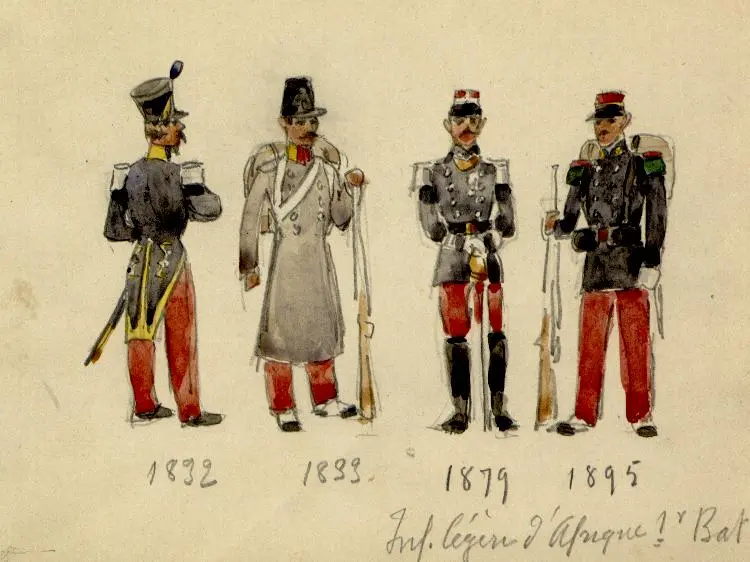 1832 1833. 1879 1895
Inf. légère d'Afrique 1r Bat